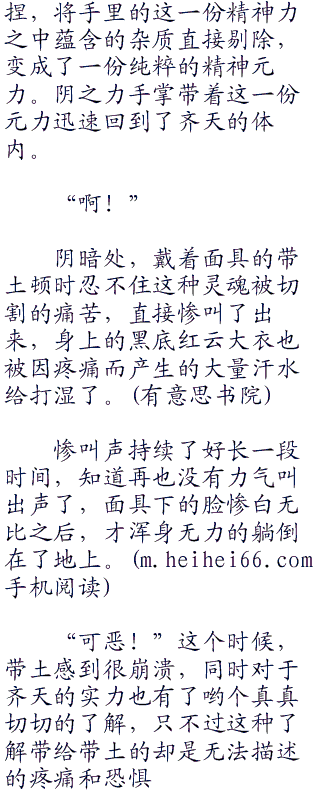 捏，将手里的这一份精神力
之中蕴含的杂质直接剔除，
变成了一份纯粹的精神元
力。阴之力手掌带着这一份
元力迅速回到了齐天的体
内。
“啊！”
阴暗处，戴着面具的带
土顿时忍不住这种灵魂被切
割的痛苦，直接惨叫了出
来，身上的黑底红云大衣也
被因疼痛而产生的大量汗水
给打湿了。(有意思书院)
惨叫声持续了好长一段
时间，知道再也没有力气叫
出声了，面具下的脸惨白无
比之后，才浑身无力的躺倒
在了地上。(m.heihei66.com
手机阅读)
“可恶！”这个时候，
带土感到很崩溃，同时对于
齐天的实力也有了哟个真真
切切的了解，只不过这种了
解带给带土的却是无法描述
的疼痛和恐惧